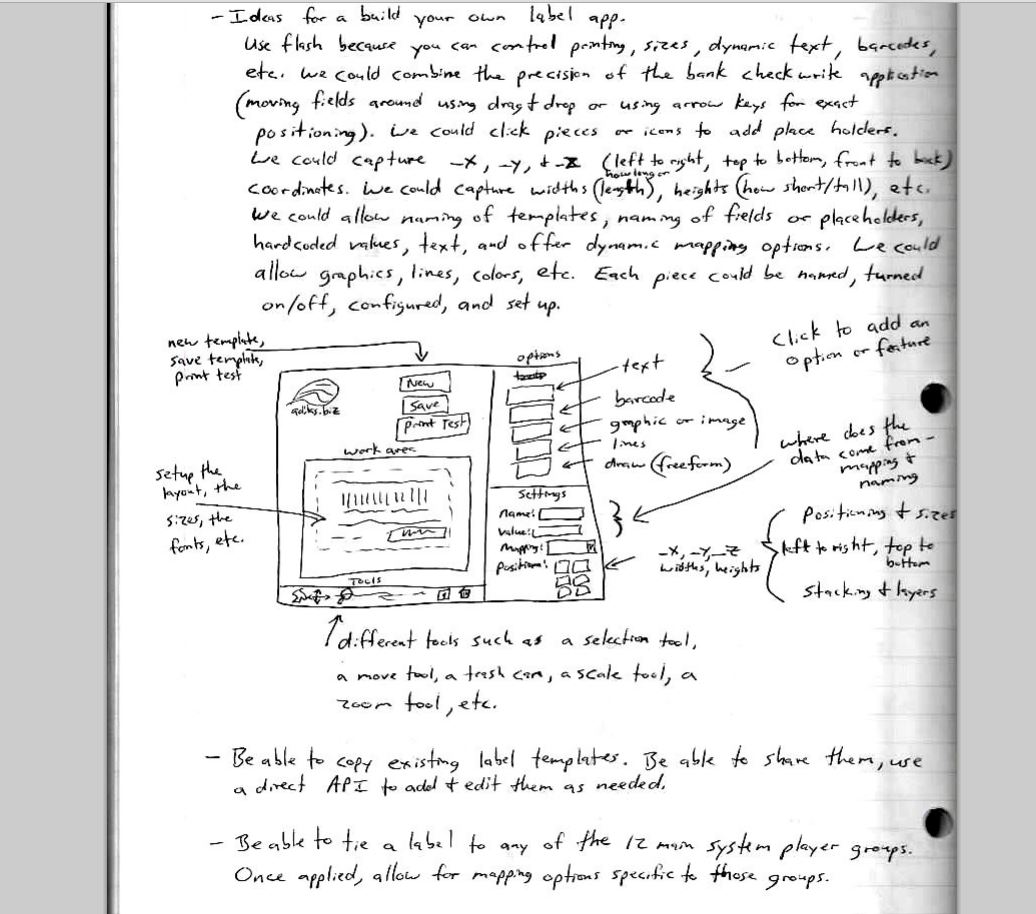 - Ideas for a build your own label app.
Use flash because you can control printing, sizes, dynamic text, barcodes,
etc. We could combine the precision of the bank check write application
(moving fields around using drag & drop or using arrow keys for exact
positioning). We could click pieces or icons to add place holders.
We could capture -X, -Y, & -Z (left to right, top to bottom, front to back)
how long or
coordinates. We could capture widths (length), heights (how short/tall), etc.
We could allow naming of templates, naming of fields or placeholders,
hardcoded values, text, and offer dynamic mapping options. We could
allow graphics, lines, colors, etc. Each piece could be named, turned
on/off, configured, and set up.
new template,
save template,
print test
adilas.biz
New
Save
Print Test
work area
setup the
layout, the
sizes, the
fonts, etc.
Tools
options
text
barcode
graphic or image
lines
draw (freeform)
Click to add an
option or feature
where does the
data come from -
mapping &
naming
Settings
Name:
Value:
Mapping:
Positions:
-X, -Y, -Z
widths, heights
Positioning & sizes
left to right, top to
bottom
stacking & layers
different tools such as a selection tool,
a move tool, a trash can, a scale tool, a
zoom tool, etc.
- Be able to copy existing label templates. Be able to share them, use
a direct API to add & edit them as needed.
- Be able to tie a label to any of the 12 main system player groups.
Once applied, allow for mapping options specific to those groups.